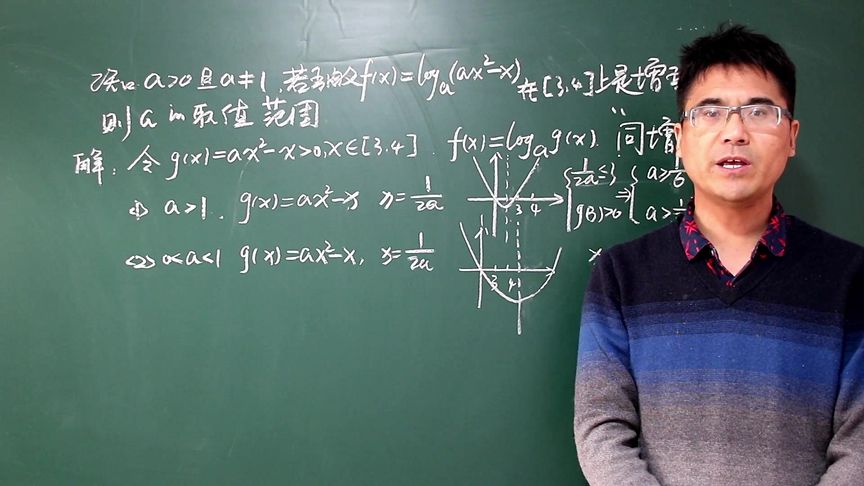 设a>0且a≠1,若函数f(x)=logₐ(ax²-x)在[3,4]上是增
则a的取值范围
解:令g(x)=ax²-x>0,x∈[3,4]. f(x)=logₐg(x). "同增
(1) a>1. g(x)=ax²-x x=1/2a 3 4 {1/2a≤3 g(3)>0 ⇒ {a≥1/6 a>1/
(2) 0<a<1 g(x)=ax²-x, x=1/2a 3 4 x